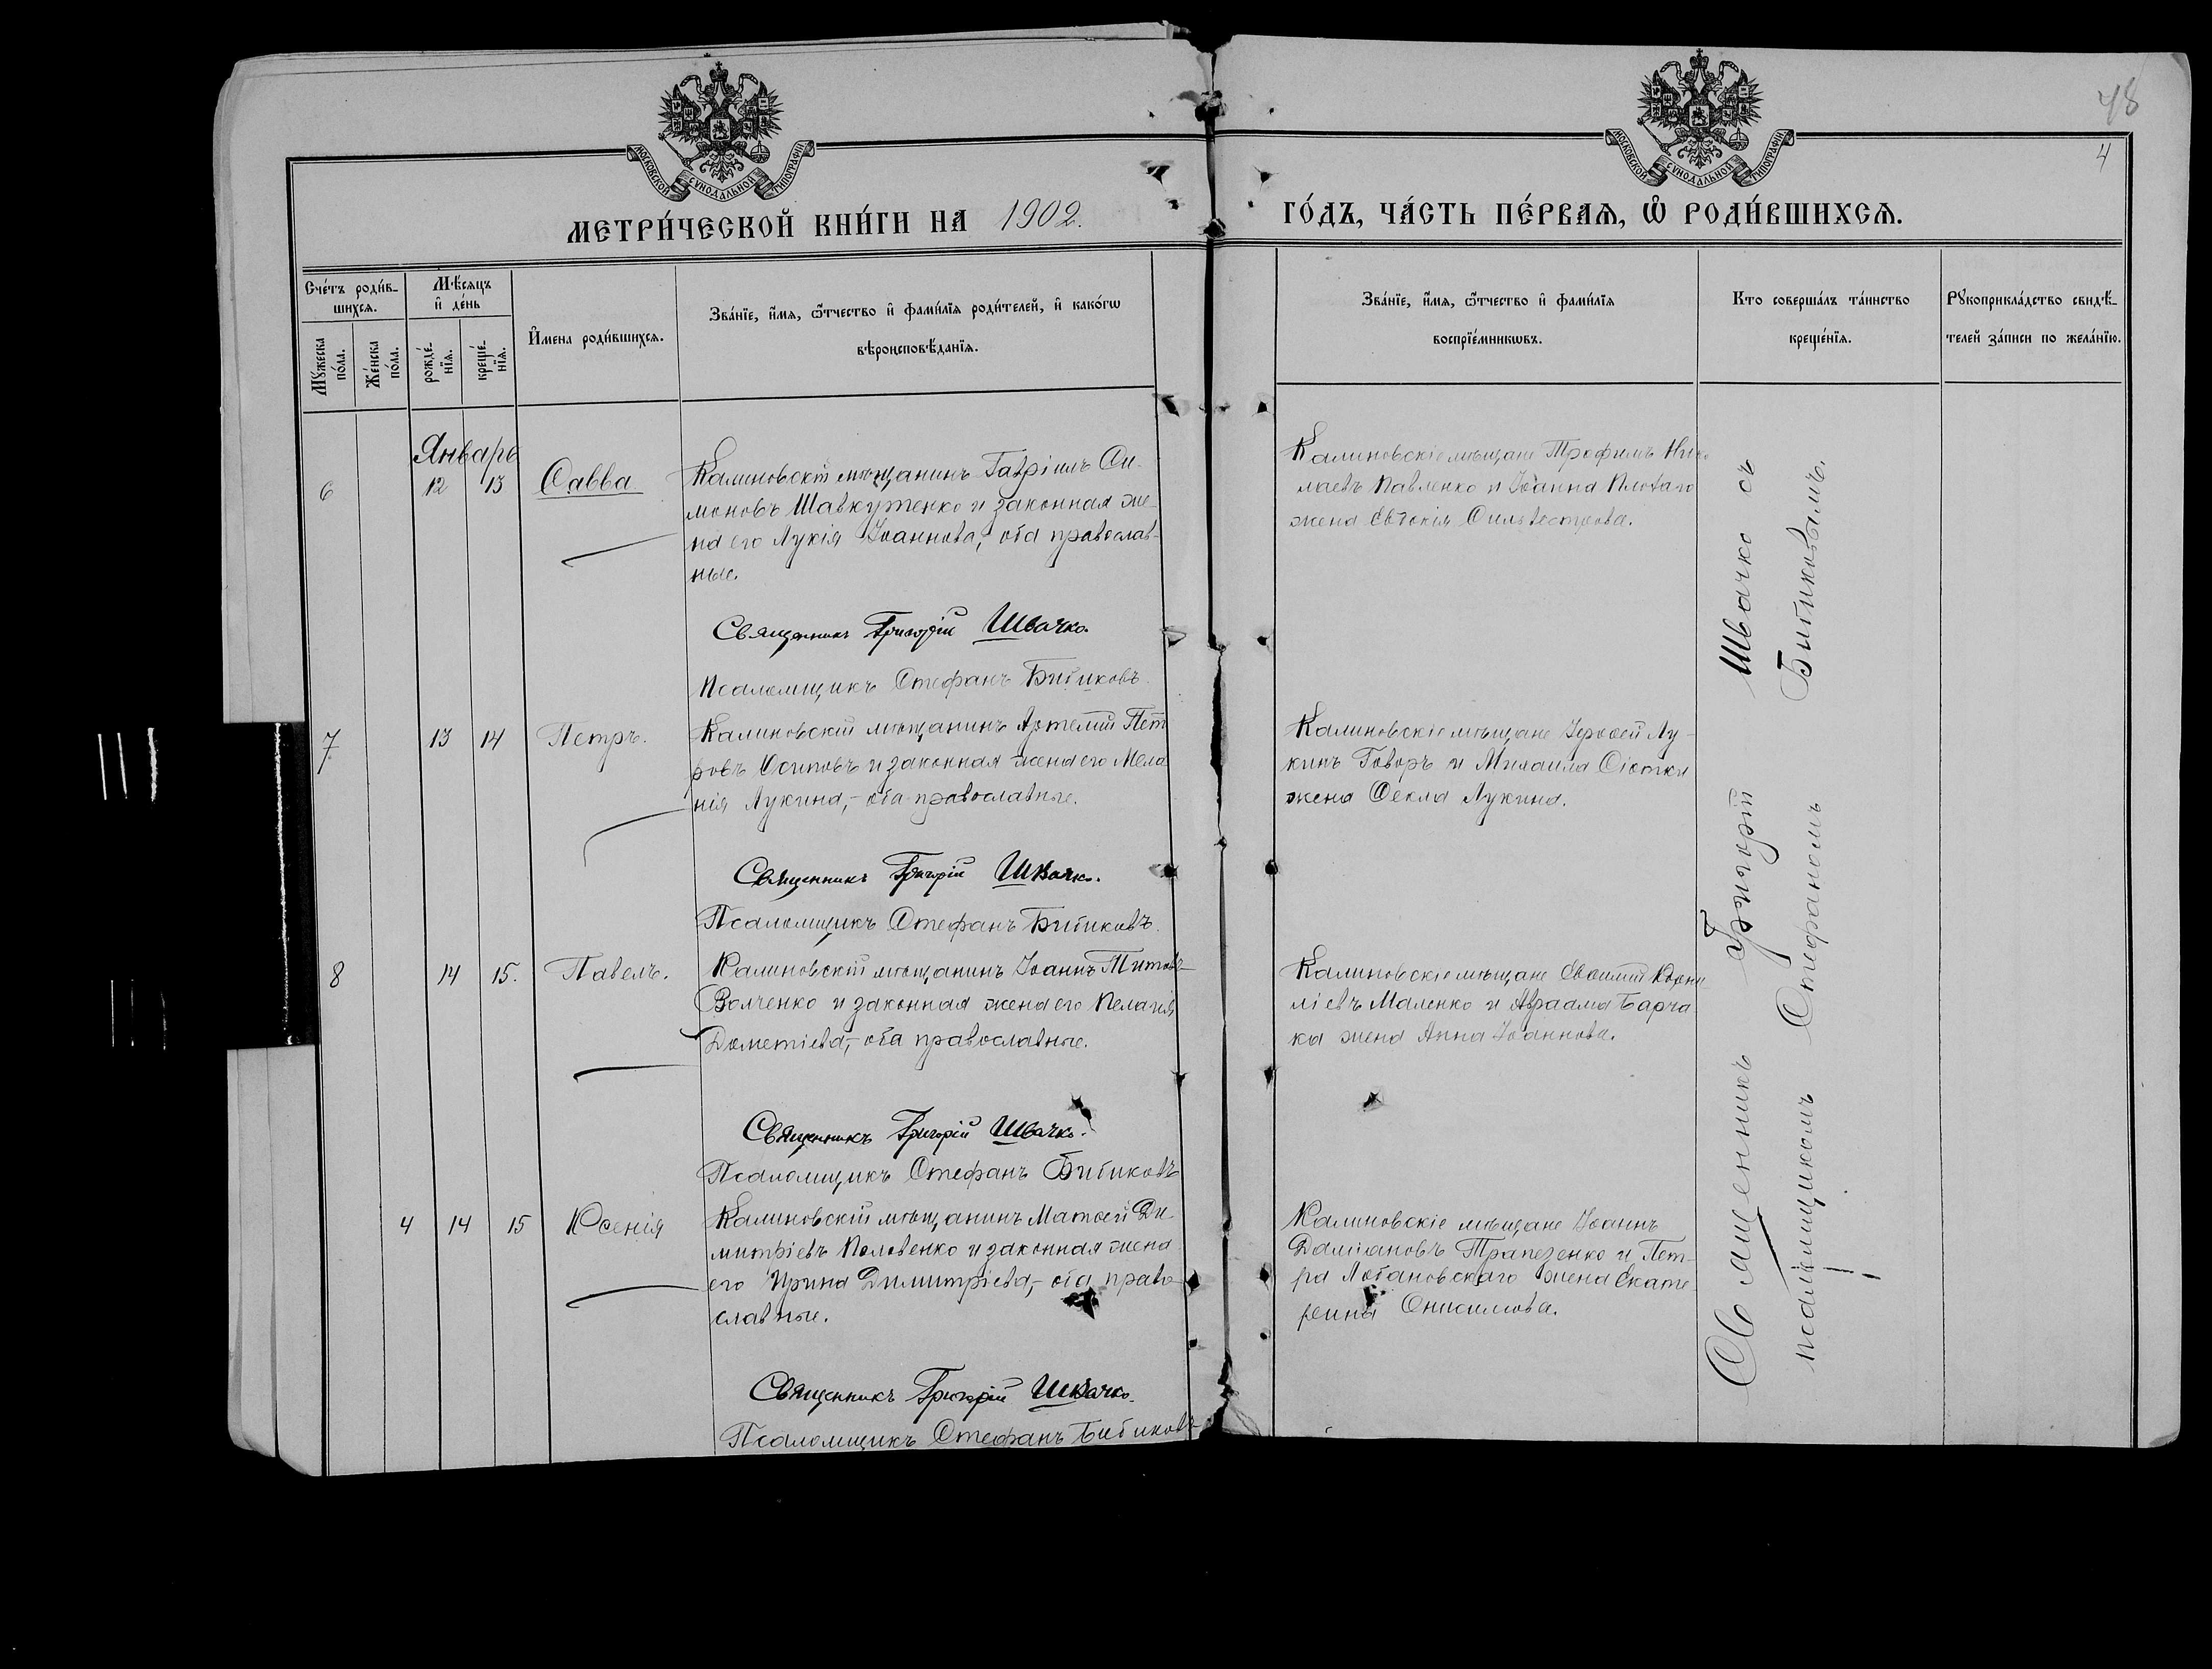 48
4
МОСКОВСКОЙ СУНОДАЛЬНОЙ ТИПОГРАФІИ
МОСКОВСКОЙ СУНОДАЛЬНОЙ ТИПОГРАФІИ
МЕТРИ́ЧЕСКОЙ КНИ́ГИ НА 1902.
ГО́ДЪ, ЧА́СТЬ ПЕ́РВАѦ, Ѡ҆ РОДИ́ВШИХСѦ.
Сче́тъ роди́в-
шихсѧ.
Мѣ́сѧцъ
и҆ де́нь
Мꙋ́жеска
по́ла.
Же́нска
по́ла.
рожде́-
нїѧ.
креще́-
нїѧ.
И҆мена роди́вшихсѧ.
Зва́нїе, и҆́мѧ, ѻ҆́тчество и҆ фами́лїѧ роди́телей, и҆ како́гѡ
вѣроисповѣ́данїѧ.
Зва́нїе, и҆́мѧ, ѻ҆́тчество и҆ фами́лїѧ
воспрїе́мникѡвъ.
Кто соверша́лъ та́инство
креще́нїѧ.
Рꙋкоприкла́дство свидѣ́-
телей за́писи по жела́нїю.
Январь
6 12 13 Савва
Калиновскій мѣщанинъ Гавріилъ Си-
моновъ Шавкутенко и законная же-
на его Лукія Іоаннова, оба православ-
ные.
Священникъ Григорій Швачко.
Псаломщикъ Стефанъ Бибиковъ.
Калиновскіе мѣщане Трофимъ Нико
лаевъ Павленко и Іоанна
жена Евдокія Сильвестрова.
7. 13 14 Петръ.
Калиновскій мѣщанинъ Артемій Пет
ровъ Осиповъ и законная жена его Мела
нія Лукина,- оба православные.
Священникъ Григорій Швачко.
Псаломщикъ Стефанъ Бибиковъ.
Калиновскіе мѣщане Іероѳей Лу-
кинъ Говоръ и Михаила
жена Ѳекла Лукина.
8 14 15. Павелъ.
Калиновскій мѣщанинъ Іоаннъ Титовъ
Волченко и законная жена его Пелагія
Дометіева,- оба православные.
Священникъ Григорій Швачко.
Псаломщикъ Стефанъ Бибиковъ
Калиновскіе мѣщане Евѳимій Корни
ліевъ Маленко и Авраама Барча
ка жена Анна Іоаннова.
4 14 15 Ксенія
Калиновскій мѣщанинъ Матѳей Ди-
митріевъ Половенко и законная жена
его Ирина Димитріева,- оба право
славные.
Священникъ Григорій Швачко.
Псаломщикъ Стефанъ Бибиковъ
Калиновскіе мѣщане Іоаннъ
Даміановъ Трапезенко и Пет-
ра Лобановскаго жена Екате
рина Онисимова.
Священникъ Григорій Швачко съ
псаломщикомъ Стефаномъ Бибиковымъ.